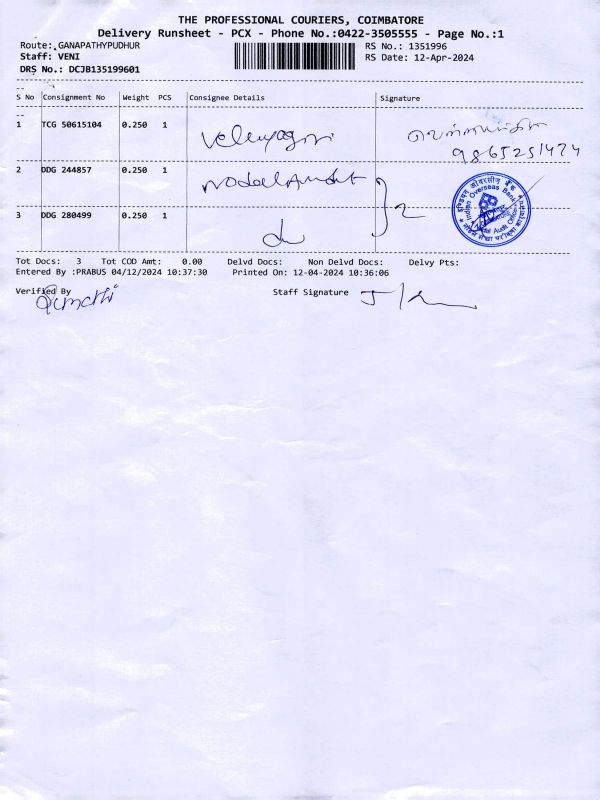 THE PROFESSIONAL COURIERS, COIMBATORE
Delivery Runsheet - PCX - Phone No.:0422-3505555 - Page No.:1
Route: GANAPATHYPUDHUR
RS No.: 1351996
Staff: VENI
RS Date: 12-Apr-2024
DRS No.: DCJB135199601
S No Consignment No Weight PCS Consignee Details Signature
1 TCG 50615104 0.250 1
9865251474
2 DDG 244857 0.250 1 Nodal Audit
2
Indian Overseas Bank
3 DDG 280499 0.250 1 do
Tot Docs: 3 Tot COD Amt: 0.00 Delvd Docs: Non Delvd Docs: Delvy Pts:
Entered By :PRABUS 04/12/2024 10:37:30 Printed On: 12-04-2024 10:36:06
Verified By Staff Signature